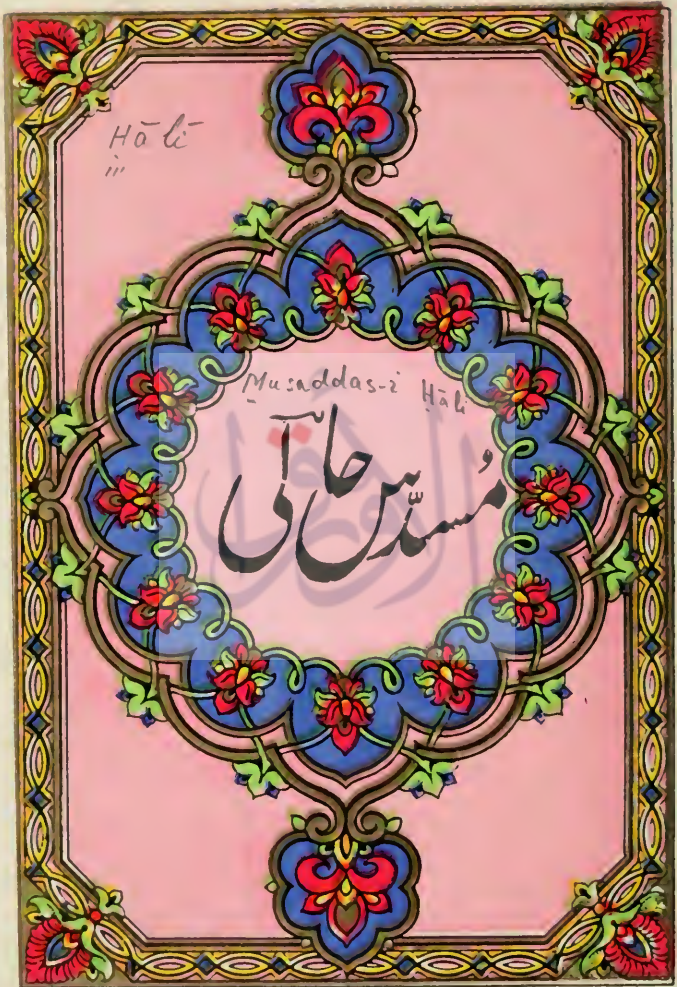 Hālī
iii
Musaddas-i Ḥāli
مُسدّسِ حالی